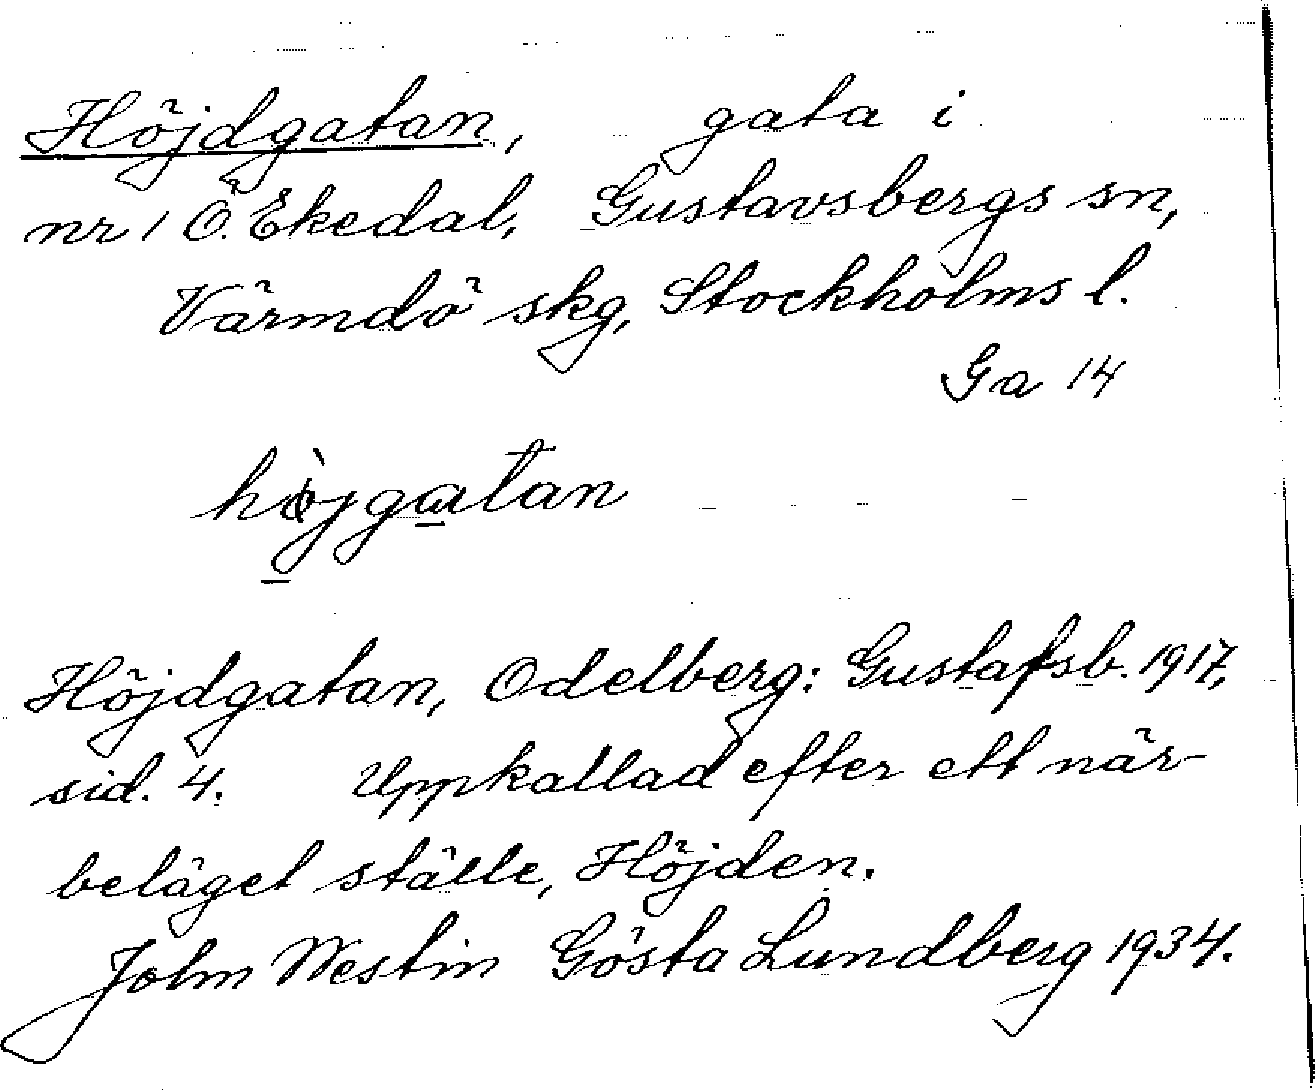 Höjdgatan, gata i
nr 1 Ö. Ekedal, Gustavsbergs sn,
Värmdö skg, Stockholms l.
Ga 14
hö̀jgatan
Höjdgatan, Odelberg: Gustafsb. 1917,
sid. 4. Uppkallad efter ett när-
beläget ställe, Höjden.
John Westin Gösta Lundberg 1934.